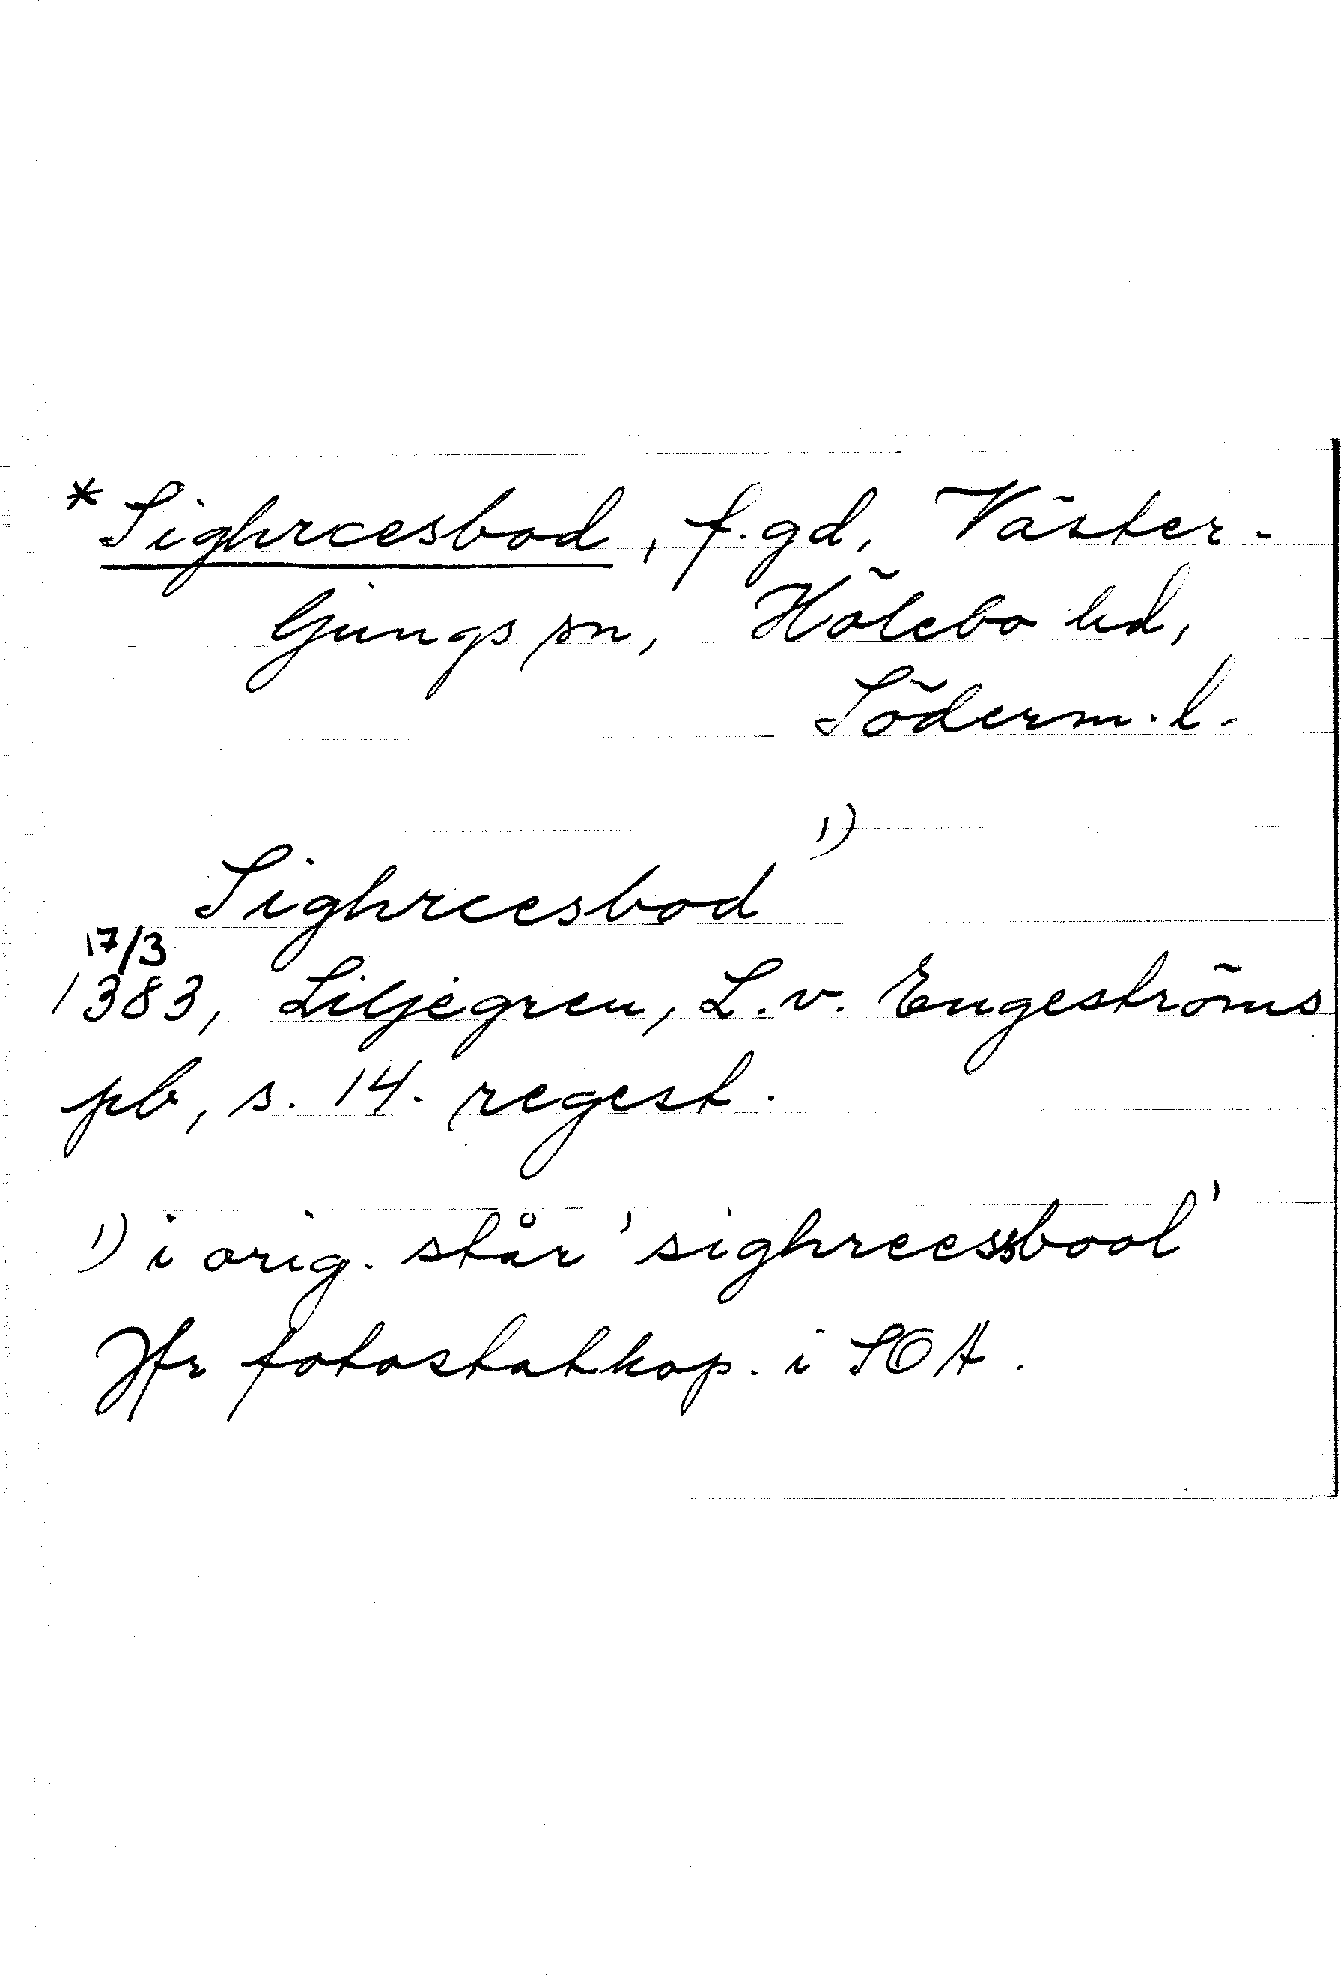 *Sighreesbod, f.gd, Väster-
ljungs sn, Hölebo hd,
Söderm. l.
Sighreesbod 1)
17/3
1383, Liljegren, L. v. Engeströms
pb, s. 14. regest.
1) i orig. står 'sighreessbool'
Jfr fotostatkop. i SOA.